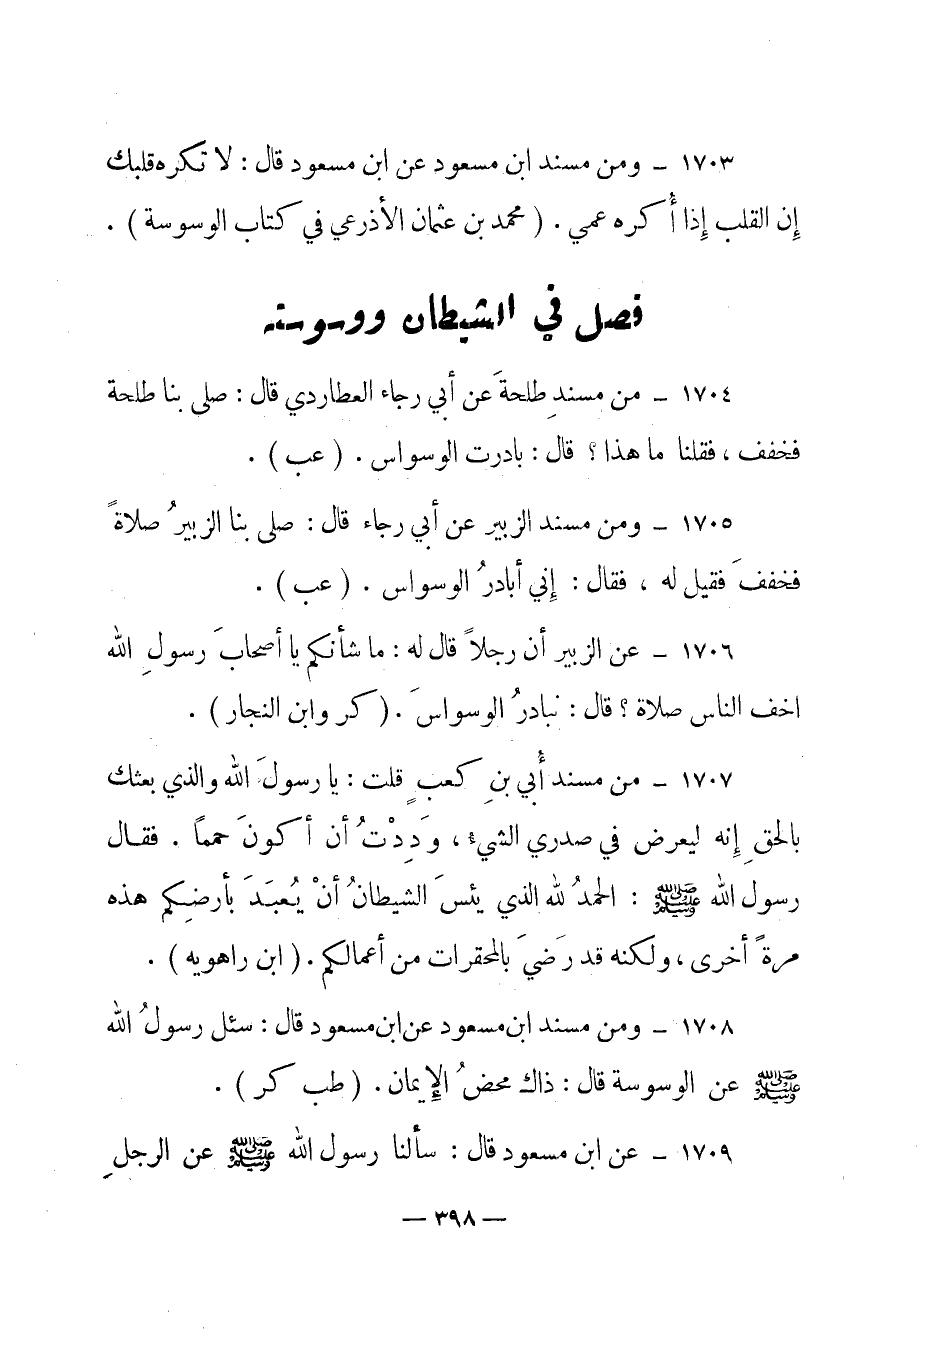 ١٧٠٣ – ومن مسند ابن مسعود عن ابن مسعود قال : لا تكره قلبك
إن القلب إذا أُكره عمي . ( محمد بن عثمان الأذرعي في كتاب الوسوسة ) .
فصل في الشيطان ووسوسته
١٧٠٤ – من مسندِ طلحةَ عن أبي رجاء العطاردي قال : صلى بنا طلحة
فخفف ، فقلنا ما هذا ؟ قال : بادرت الوسواس . ( عب ) .
١٧٠٥ – ومن مسند الزبير عن أبي رجاء قال : صلى بنا الزبيرُ صلاةً
فخففَ فقيل له ، فقال : إني أبادرُ الوسواس . ( عب ) .
١٧٠٦ – عن الزبير أن رجلاً قال له : ما شأنكم يا أصحابَ رسولِ الله
اخف الناس صلاة ؟ قال : نبادرُ الوسواسَ . ( كر وابن النجار ) .
١٧٠٧ – من مسند أُبي بنِ كعبٍ قلت : يا رسولَ الله والذي بعثك
بالحقِ إنه ليعرض في صدري الشيء ، وَدِدْتُ أن أكونَ حمماً . فقال
رسول الله ﷺ : الحمدُ لله الذي يئسَ الشيطانُ أنْ يُعبَدَ بأرضِكم هذه
مرةً أخرى ، ولكنه قد رَضيَ بالمحقرات من أعمالكم . ( ابن راهويه ) .
١٧٠٨ – ومن مسند ابن مسعود عن ابن مسعود قال : سئل رسولُ الله
ﷺ عن الوسوسة قال : ذاك محضُ الإيمان . ( طب كر ) .
١٧٠٩ – عن ابن مسعود قال : سألنا رسول الله ﷺ عن الرجلِ
— ٣٩٨ —